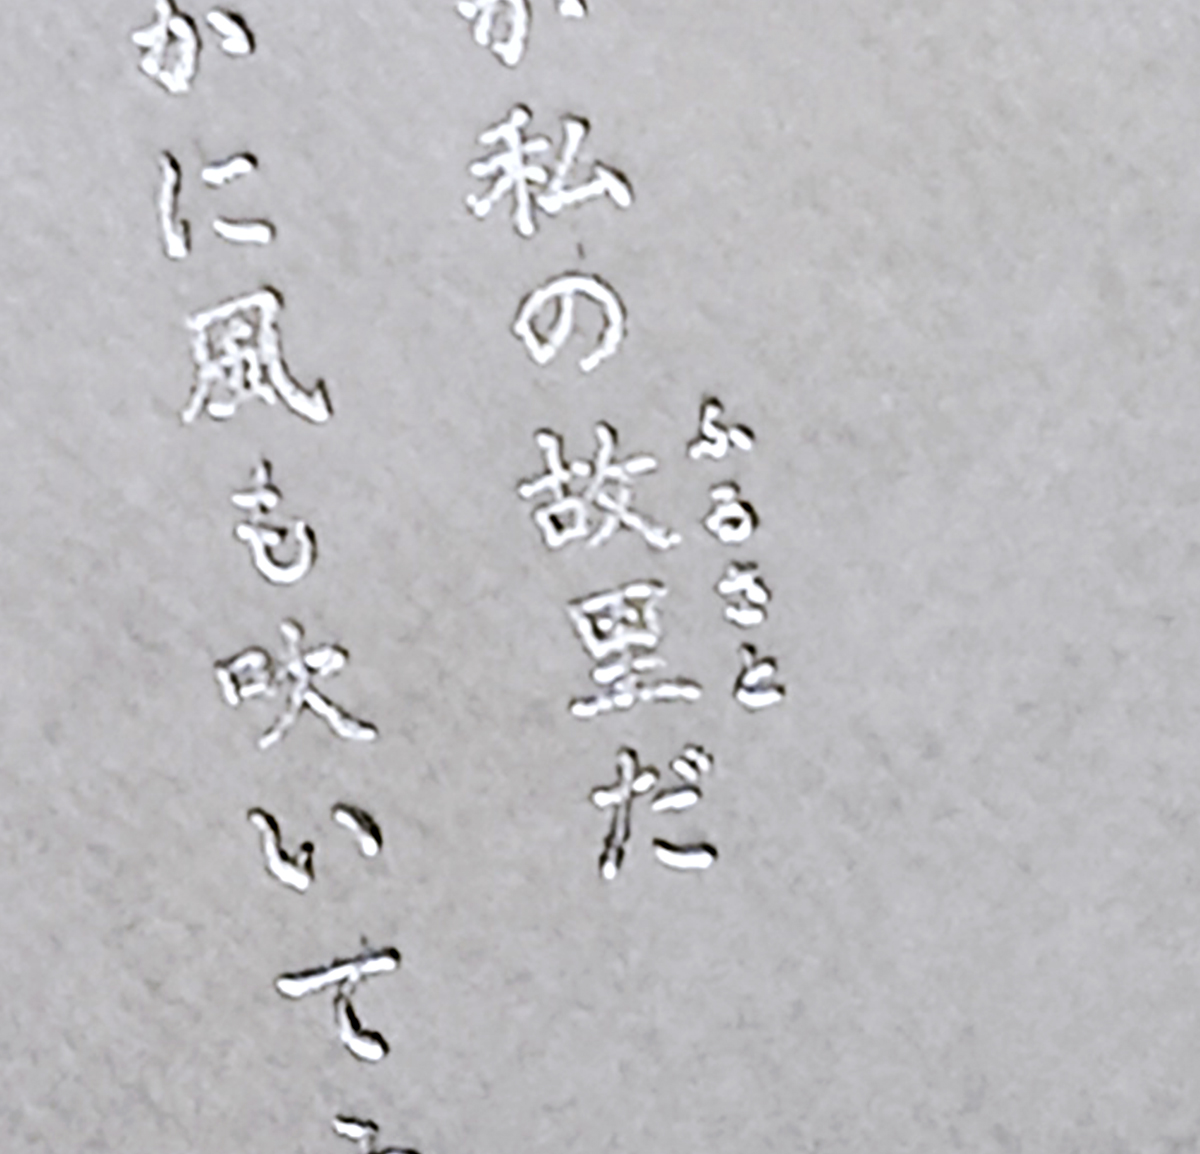 が私の故里だ
ふるさと
かに風も吹いて